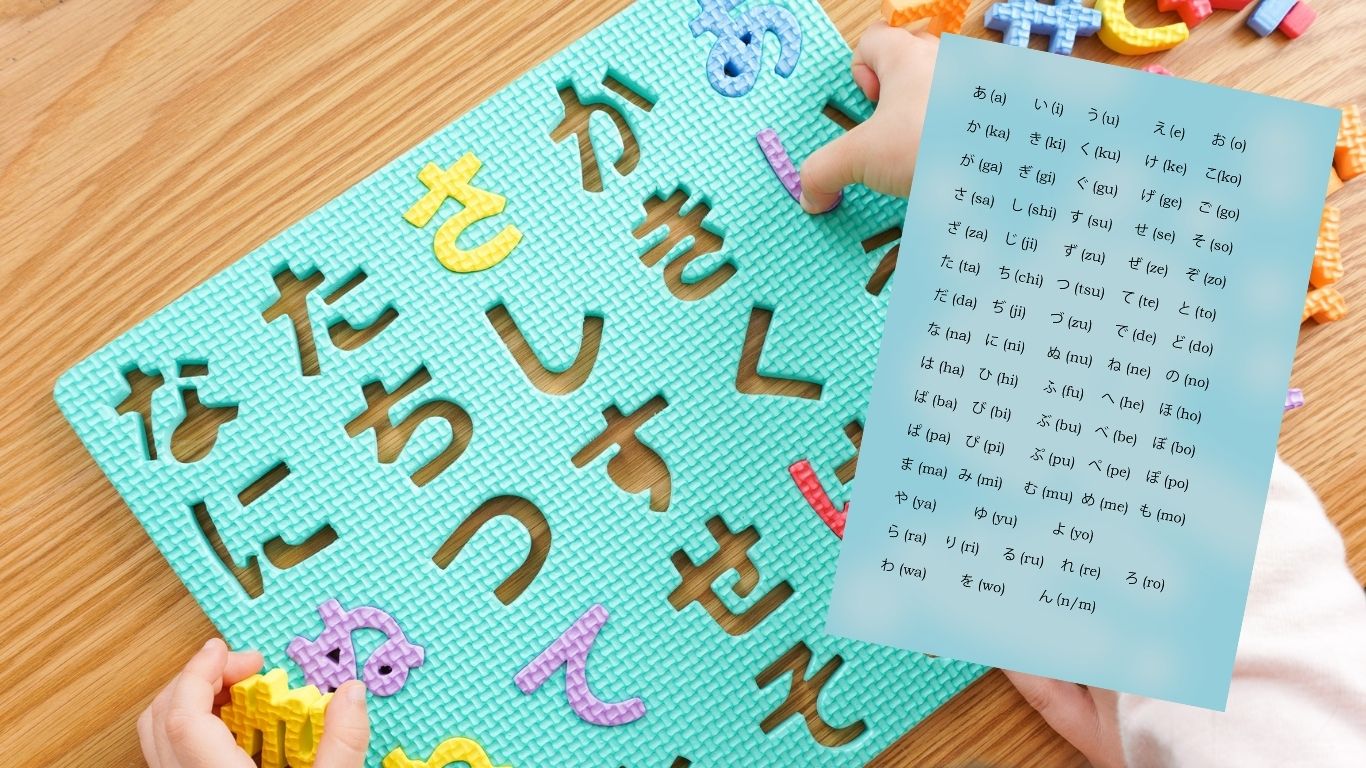 あ か さ た な
き し ち に
く す つ ぬ
せ て
そ
あ (a) い (i) う (u) え (e) お (o)
か (ka) き (ki) く (ku) け (ke) こ(ko)
が (ga) ぎ (gi) ぐ (gu) げ (ge) ご (go)
さ (sa) し (shi) す (su) せ (se) そ (so)
ざ (za) じ (ji) ず (zu) ぜ (ze) ぞ (zo)
た (ta) ち (chi) つ (tsu) て (te) と (to)
だ (da) ぢ (ji) づ (zu) で (de) ど (do)
な (na) に (ni) ぬ (nu) ね (ne) の (no)
は (ha) ひ (hi) ふ (fu) へ (he) ほ (ho)
ば (ba) び (bi) ぶ (bu) べ (be) ぼ (bo)
ぱ (pa) ぴ (pi) ぷ (pu) ぺ (pe) ぽ (po)
ま (ma) み (mi) む (mu) め (me) も (mo)
や (ya) ゆ (yu) よ (yo)
ら (ra) り (ri) る (ru) れ (re) ろ (ro)
わ (wa) を (wo) ん (n/m)